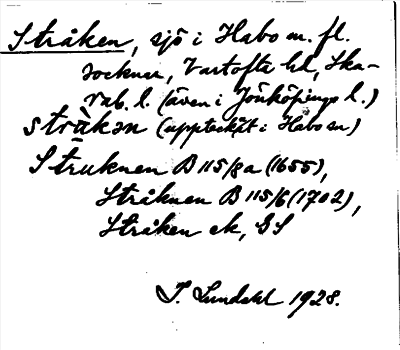 Stråken, sjö i Habo m. fl.
socknar, Vartofta hd, Ska-
rab. l. (även i Jönköpings l.)
stråkən (uppteckn̄at i Habo sn)
Struknen B 115/8a (1655),
Stråknen B 115/6 (1702),
Stråken ek, GS
I. Lundahl 1928.